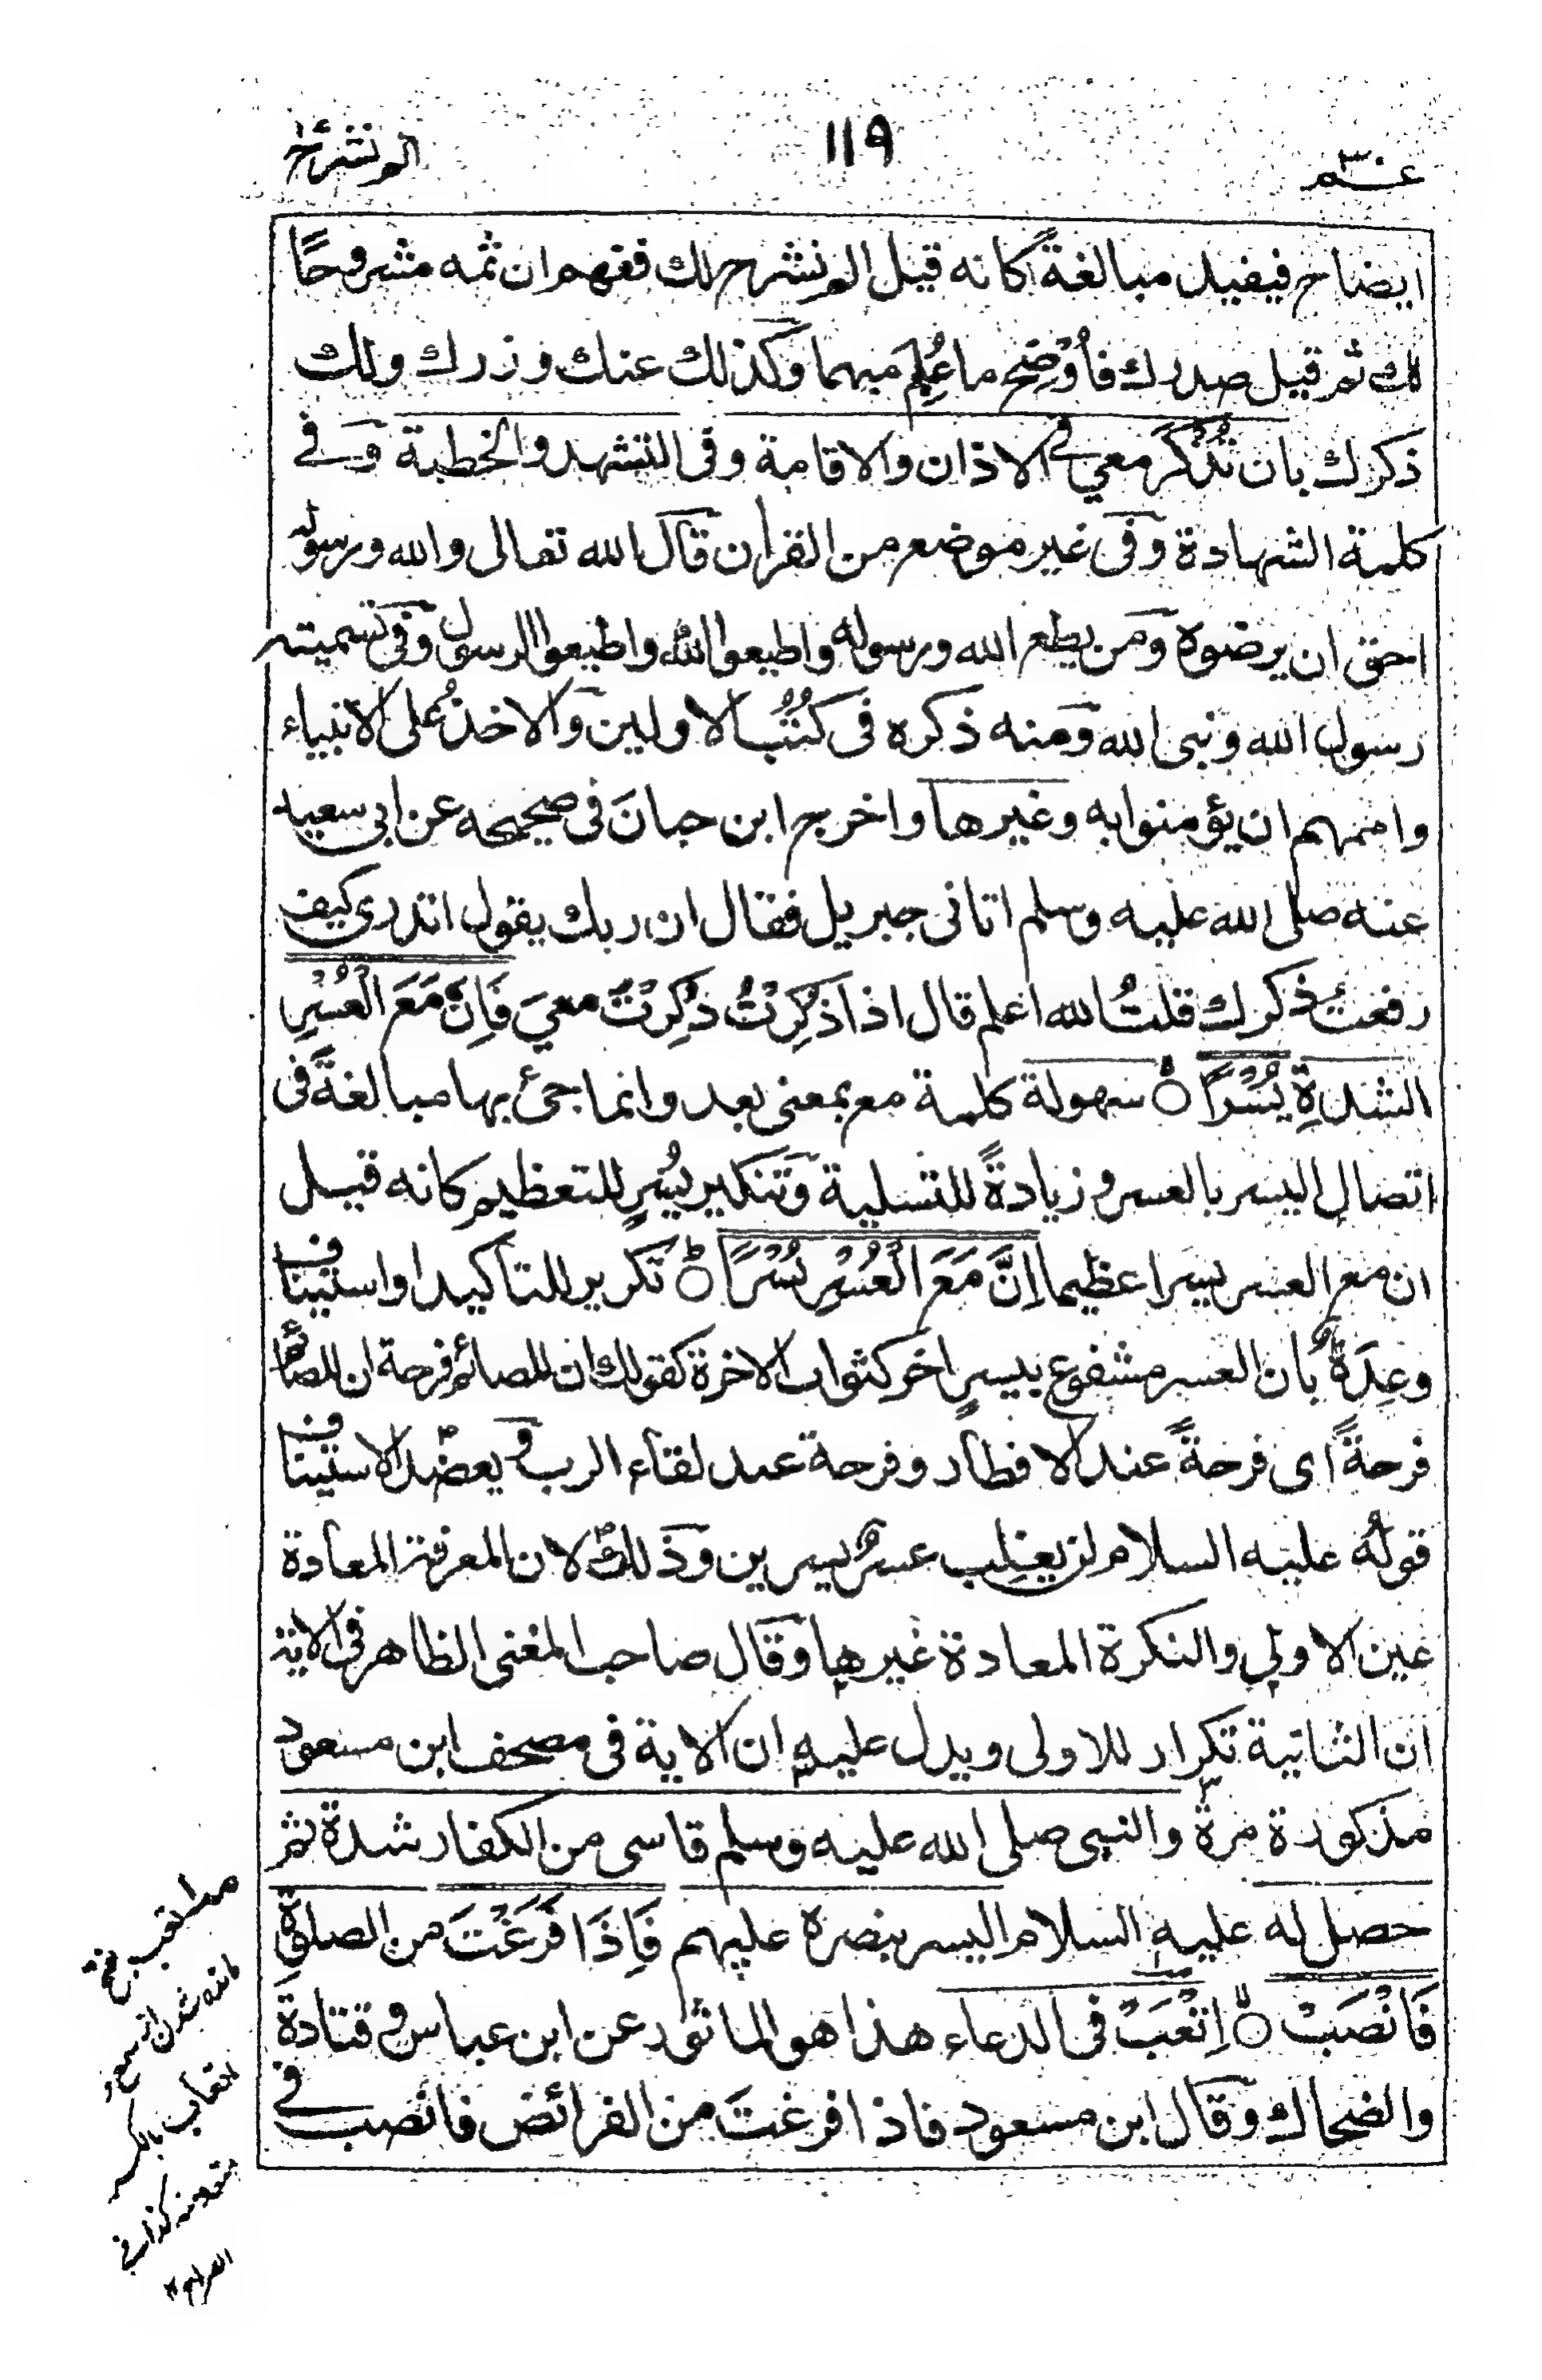 عم ٣٠
١١٩
الم نشرح
ايضاح فيفيد مبالغةً كانه قيل الم نشرح لك ففهم ان ثمه مشروحًا
لك ثم قيل صدرك فأُوْضِحَ ما عُلِمَ مبهما وكذلك عنك وزرك ولك
ذكرك بان تُذْكَرَ معي في الاذان والاقامة وفى التشهد والخطبة وفي
كلمة الشهادة وفى غير موضع من القرآن قال الله تعالى والله ورسوله
احق ان يرضوه ومن يطع الله ورسوله واطيعوا الله واطيعوا الرسول وفى تسميته
رسول الله ونبى الله ومنه ذكره فى كُتُب الاولين والاخذُ على الانبياء
واممهم ان يؤمنوا به وغيرها واخرج ابن حبانَ فى صحيحه عن ابى سعيد
عنه صلى الله عليه وسلم اتانى جبريل فقال ان ربك يقول اتدرى كيف
رفعتُ ذكرك قلتُ الله اعلم قال اذا ذُكِرْتُ ذُكِرْتَ معيَ فَاِنَّ مَعَ الْعُسْرِ
الشدةِ يُسْرًا ۝ سهولة كلمة مع بمعنى بعد وانما جئ بها مبالغةً فى
اتصال اليسر بالعسر وزيادةً للتسلية وتنكير يُسْرٍ للتعظيم كانه قيل
ان مع العسر يسرا عظيما اِنَّ مَعَ الْعُسْرِ يُسْرًا ۝ تكرير للتأكيد او استيناف
وعِدَةٌ بان العسر مشفوع بيسرٍ اخر كثواب الاخرة كقولك ان للصائم فرحة ان للصائم
فرحةً اى فرحةً عند الافطار وفرحة عند لقاء الرب ويعضد الاستيناف
قولُه عليه السلام لن يغلب عسرٌ يسرين وذلك لان المعرفة المعادة
عين الاولى والنكرة المعادة غيرها وقال صاحب المغنى الظاهر فى الاية
ان الثانية تكرار للاولى ويدل عليه ان الاية فى مصحف ابن مسعود
مذكورة مرة والنبى صلى الله عليه وسلم قاسى من الكفار شدة ثم
حصل له عليه السلام اليسر بنصره عليهم فَاِذَا فَرَغْتَ من الصلوةِ
فَانْصَبْ ۝ اِتْعَبْ فى الدعاء هذا هو الماثور عن ابن عباس وقتادة
والضحاك وقال ابن مسعود فاذا فرغتَ من الفرائض فانصب في